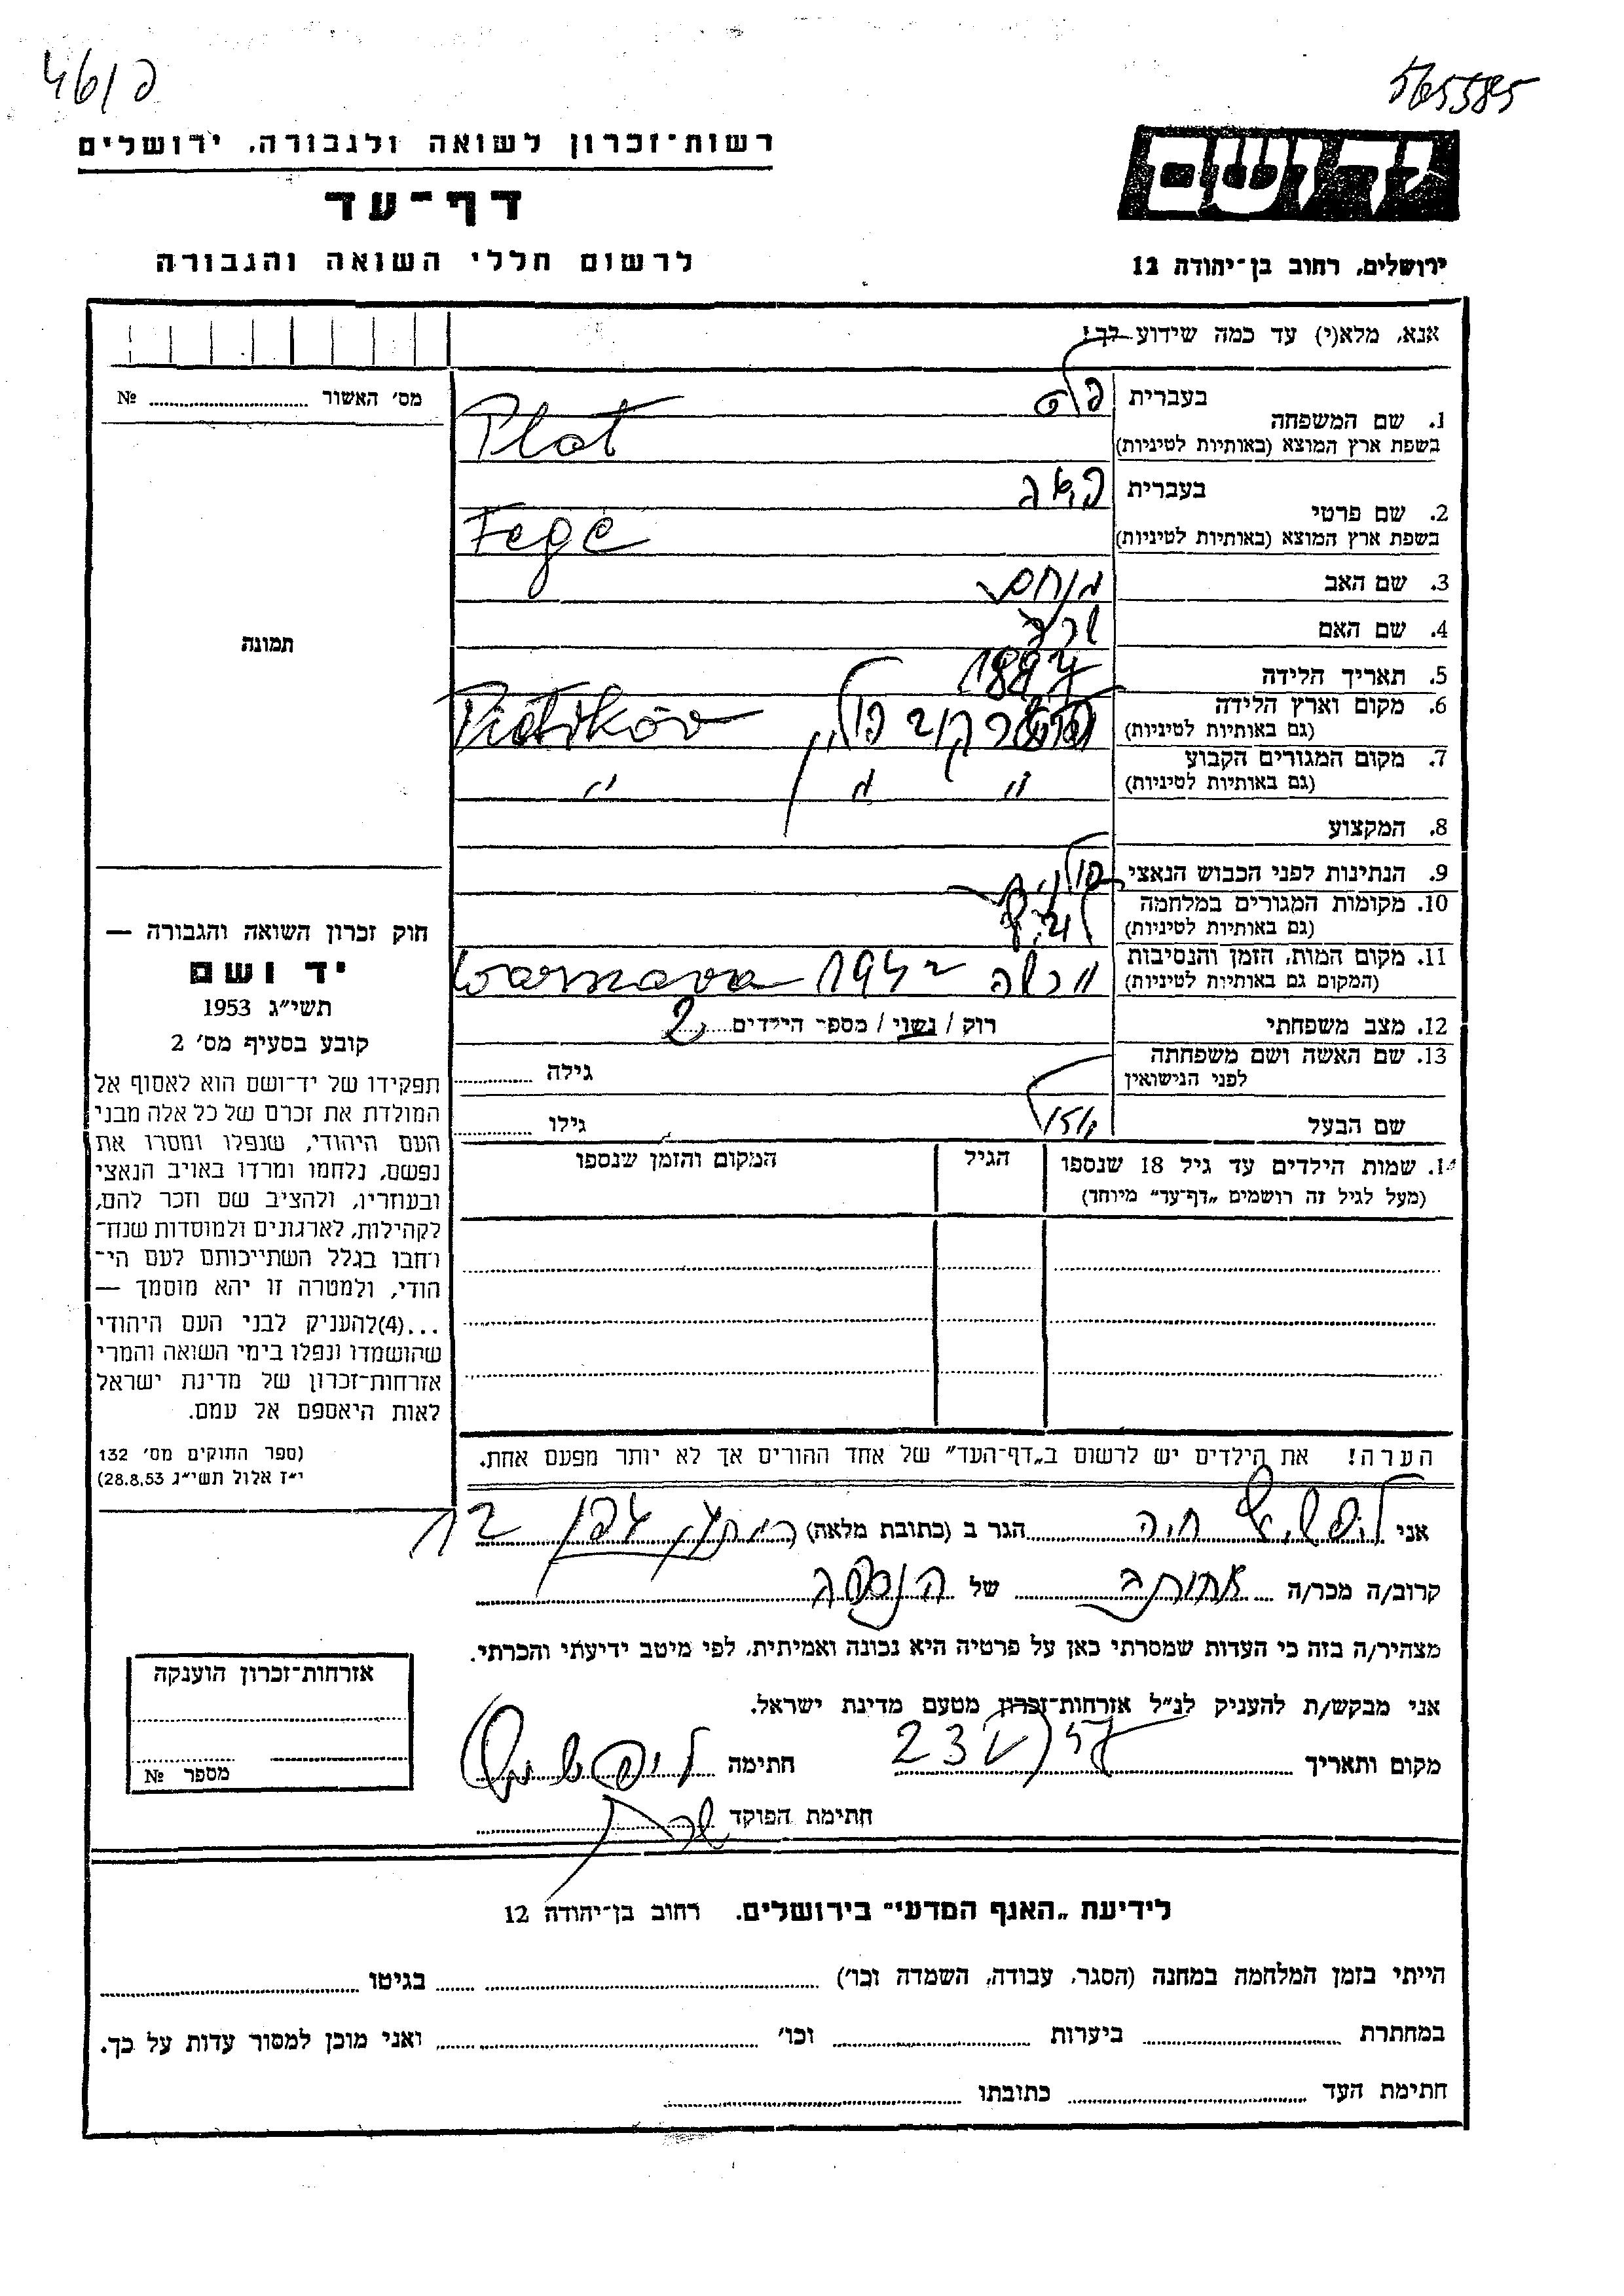 46/פ
565585
רשות־זכרון לשואה ולגבורה, ירושלים
דף־עד
לרשום חללי השואה והגבורה
יד ושם
ירושלים, רחוב בן־יהודה 12
אנא, מלא(י) עד כמה שידוע לך!
מס׳ האשור № ........
תמונה
1. שם המשפחה
בעברית פלט
בשפת ארץ המוצא (באותיות לטיניות) Plat
2. שם פרטי
בעברית פיגה
בשפת ארץ המוצא (באותיות לטיניות) Fege
3. שם האב מנחם
4. שם האם שרה
5. תאריך הלידה 1887
6. מקום וארץ הלידה
(גם באותיות לטיניות) פולין Piotrkóv
7. מקום המגורים הקבוע
(גם באותיות לטיניות) " " "
8. המקצוע
9. הנתינות לפני הכבוש הנאצי פולנית
10. מקומות המגורים במלחמה
(גם באותיות לטיניות)
11. מקום המות, הזמן והנסיבות
(המקום גם באותיות לטיניות) ורשה 1942
12. מצב משפחתי רוק / נשוי / מספר הילדים 2
13. שם האשה ושם משפחתה
לפני הנישואין גילה ........
שם הבעל גילו ........
14. שמות הילדים עד גיל 18 שנספו
(מעל לגיל זה רושמים „דף־עד״ מיוחד)
הגיל
המקום והזמן שנספו
חוק זכרון השואה והגבורה —
יד ושם
תשי״ג 1953
קובע בסעיף מס׳ 2
תפקידו של יד־ושם הוא לאסוף אל
המולדת את זכרם של כל אלה מבני
העם היהודי, שנפלו ומסרו את
נפשם, נלחמו ומרדו באויב הנאצי
ובעוזריו, ולהציב שם וזכר להם,
לקהילות, לארגונים ולמוסדות שנח־
רחבו בגלל השתייכותם לעם הי־
הודי, ולמטרה זו יהא מוסמך —
...(4)להעניק לבני העם היהודי
שהושמדו ונפלו בימי השואה והמרי
אזרחות־זכרון של מדינת ישראל
לאות היאספם אל עמם.
(ספר החוקים מס׳ 132
י״ז אלול תשי״ג 28.8.53)
הערה! את הילדים יש לרשום ב„דף־העד״ של אחד ההורים אך לא יותר מפעם אחת.
אני חיה הגר ב (כתובת מלאה) 12
קרוב/ה מכר/ה אחותה של הנספה
מצהיר/ה בזה כי העדות שמסרתי כאן על פרטיה היא נכונה ואמיתית, לפי מיטב ידיעתי והכרתי.
אני מבקש/ת להעניק לנ״ל אזרחות־זכרון מטעם מדינת ישראל.
מקום ותאריך 23 V 57 חתימה
חתימת הפוקד
אזרחות־זכרון הוענקה
מספר №
לידיעת „האגף המדעי״ בירושלים. רחוב בן־יהודה 12
הייתי בזמן המלחמה במחנה (הסגר, עבודה, השמדה וכו׳) ........ בגיטו ........
במחתרת ........ ביערות ........ וכו׳ ........ ואני מוכן למסור עדות על כך.
חתימת העד ........ כתובתו ........